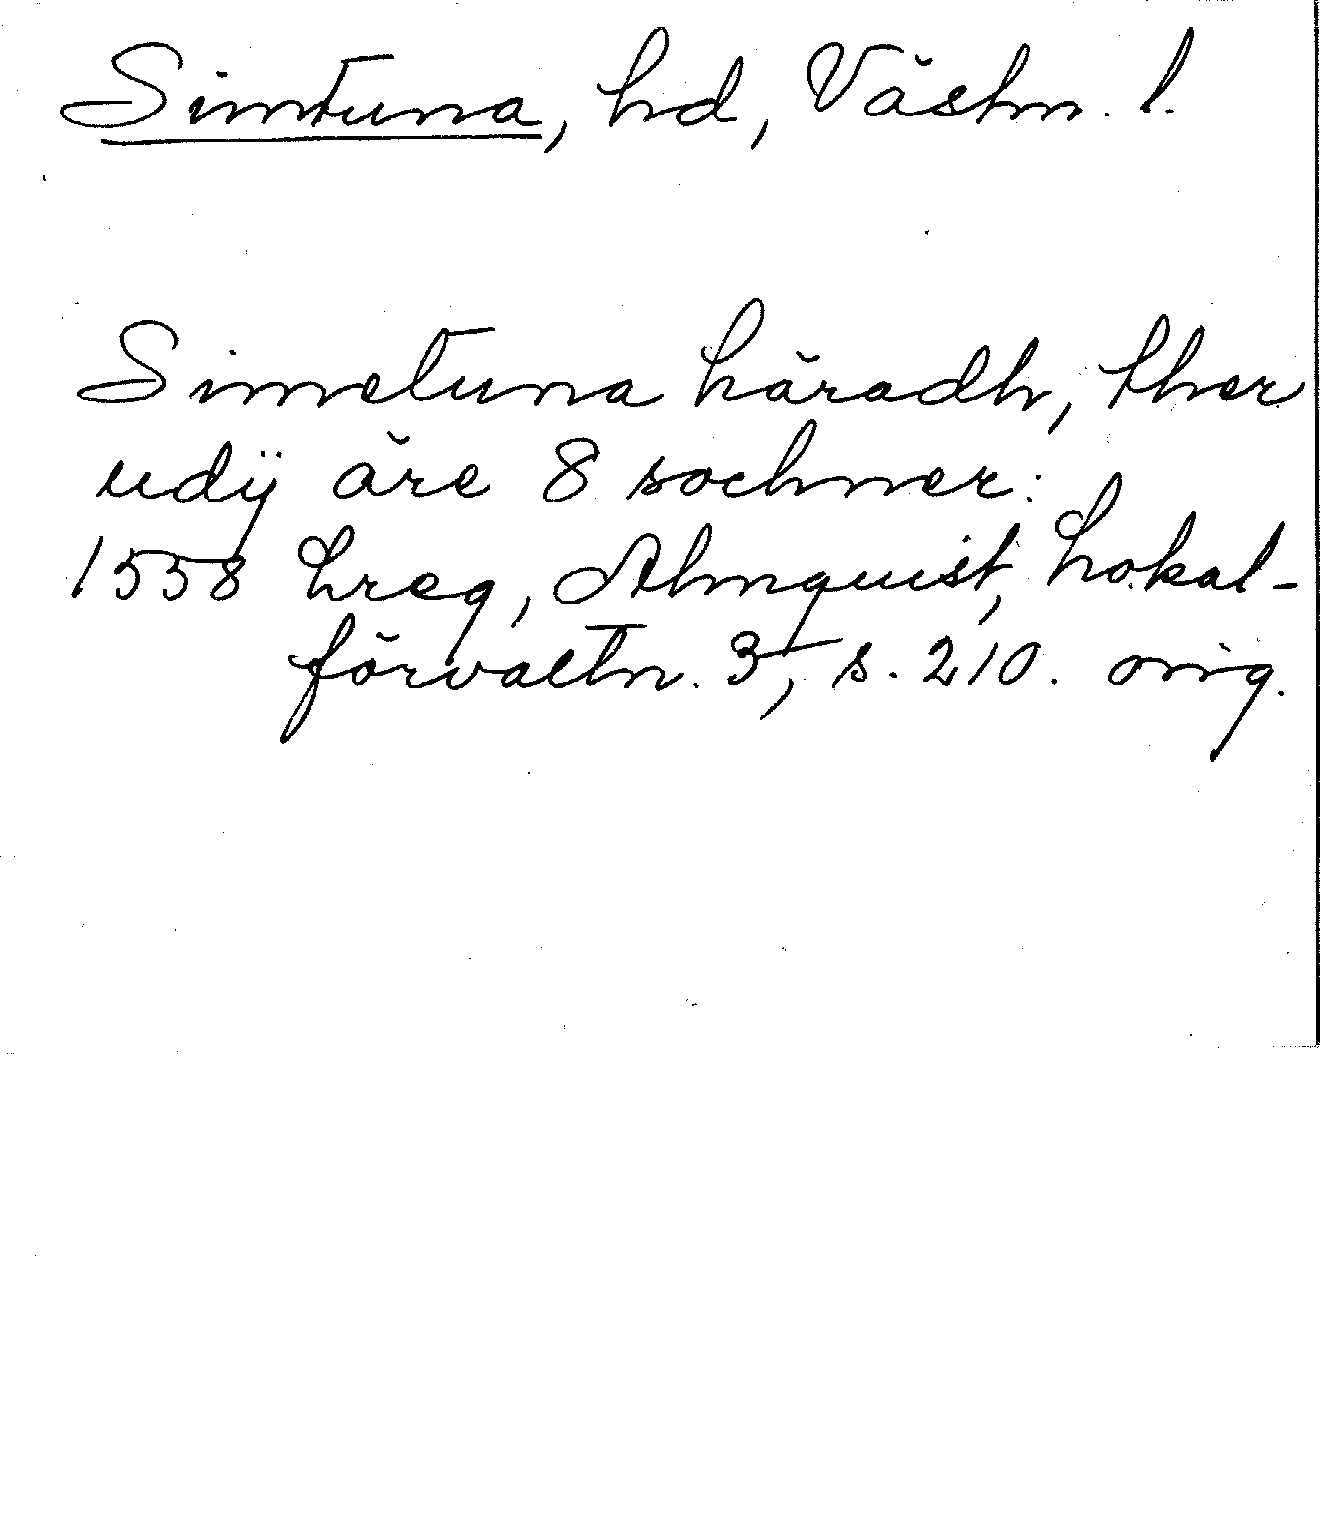 Simtuna, hd, Västm. l.
Simetuna häradh, ther
udÿ äre 8 sochner:
1558 hreg, Almquist, Lokal-
förvaltn. 3, s. 210. orig.